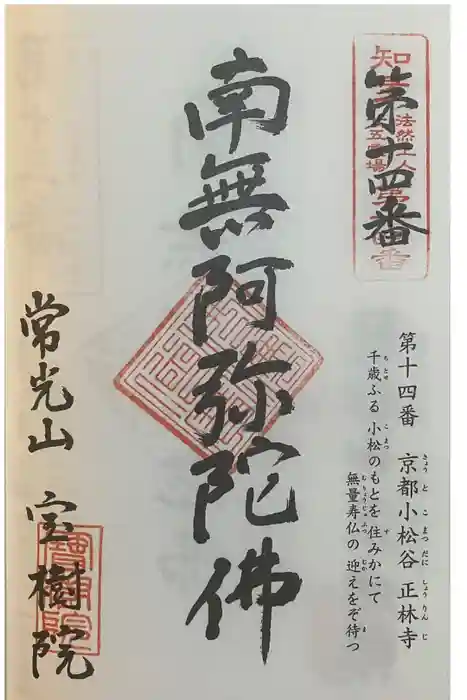 第十四番
第十四番 京都小松谷 正林寺
千歳ふる 小松のもとを 住みかにて
無量寿仏の 迎えをぞ待つ
南無阿弥陀佛
常光山 宝樹院